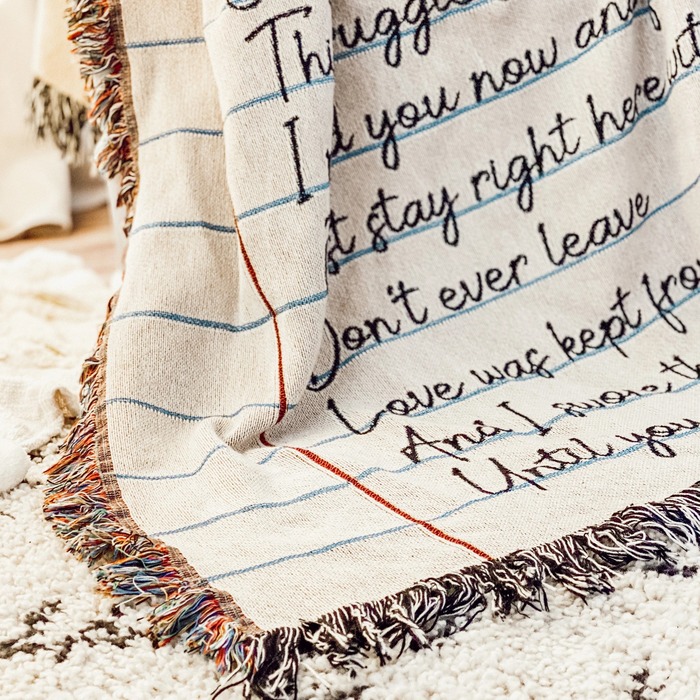 Thi uggl
I d you now and
t stay right here wit
Don't ever leave
Love was kept fro
And I swore th
Until you